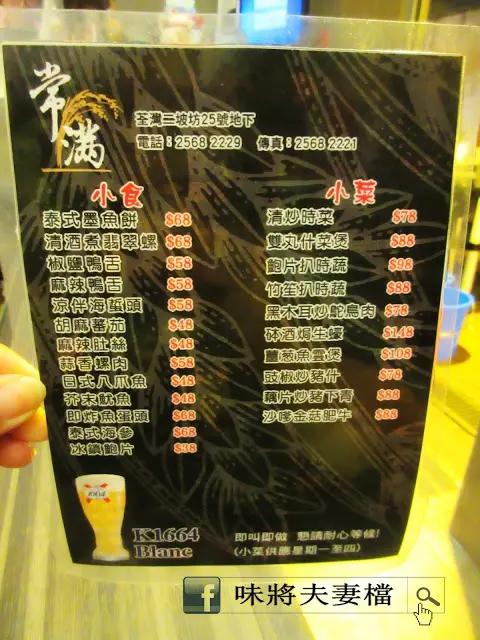 常滿
荃灣二坡坊25號地下
電話：2568 2229 傳真：2568 2221
小食
泰式墨魚餅 $68
清酒煮翡翠螺 $68
椒鹽鴨舌 $58
麻辣鴨舌 $58
涼伴海蜇頭 $58
胡麻蕃茄 $48
麻辣肚絲 $48
蒜香螺肉 $58
日式八爪魚 $48
芥末魷魚 $48
即炸魚蛋頭 $68
泰式海參 $68
冰鎮鮑片 $38
小菜
清炒時菜 $78
雙丸什菜煲 $88
鮑片扒時蔬 $98
竹笙扒時蔬 $88
黑木耳炒鴕鳥肉 $78
砵酒焗生蠔 $148
薑葱魚雲煲 $108
豉椒炒豬什 $78
藕片炒豬下青 $88
沙嗲金菇肥牛 $88
1664
K1664
Blanc
即叫即做 懇請耐心等候!
(小菜供應星期一至四)
f 味將夫妻檔